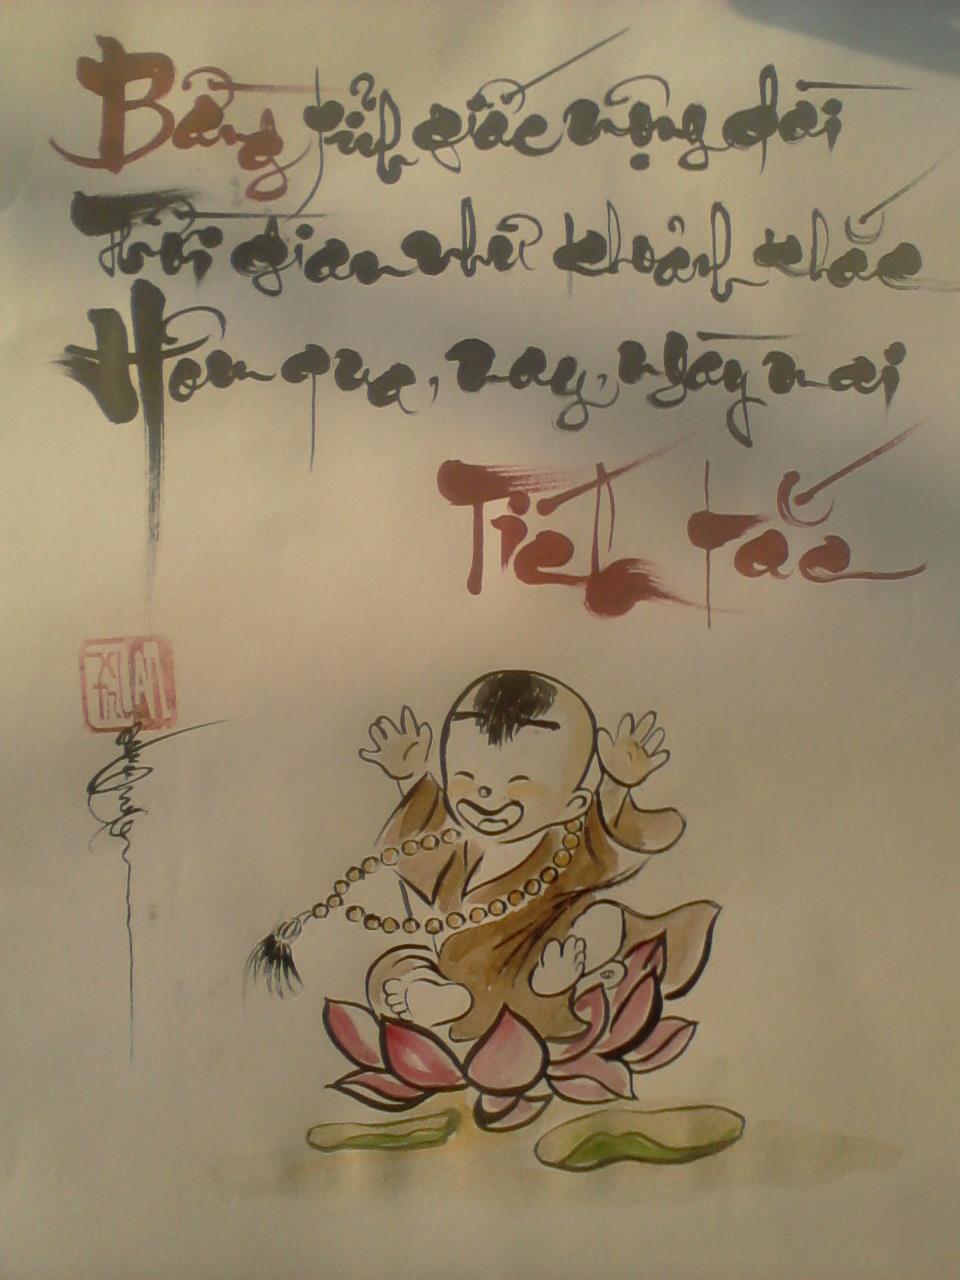 Bừng tỉnh giấc mộng dài
Thời gian như khoảnh khắc
Hôm qua, nay, ngày mai
Tích tắc